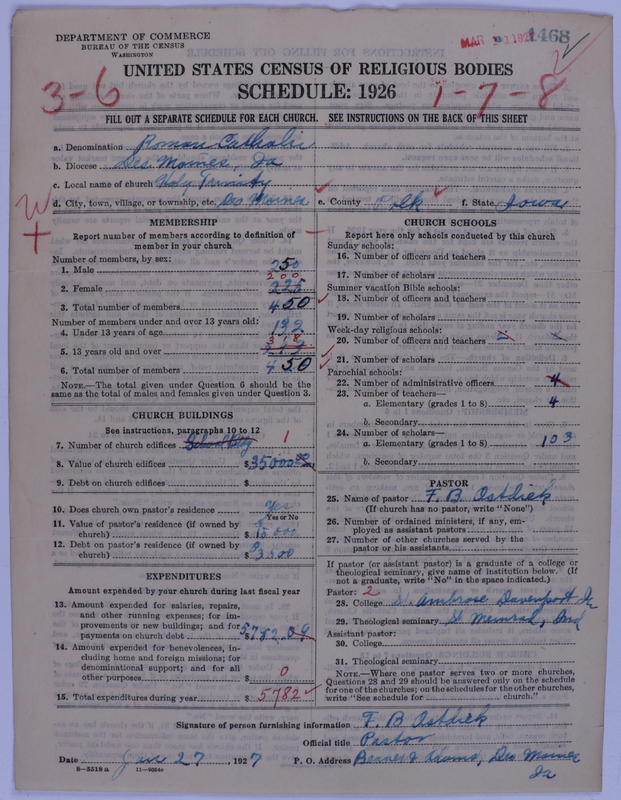 DEPARTMENT OF COMMERCE
BUREAU OF THE CENSUS
WASHINGTON
1468
UNITED STATES CENSUS OF RELIGIOUS BODIES
SCHEDULE: 1926
3-6
1-7-8
FILL OUT A SEPARATE SCHEDULE FOR EACH CHURCH. SEE INSTRUCTIONS ON THE BACK OF THIS SHEET
a. Denomination Roman Catholic
b. Diocese Des Moines, Ia
c. Local name of church Holy Trinity
d. City, town, village, or township, etc. Des Moines e. County Polk f. State Iowa
MEMBERSHIP
Report number of members according to definition of
member in your church
Number of members, by sex:
1. Male 250
200
2. Female 225
3. Total number of members 450
Number of members under and over 13 years old:
4. Under 13 years of age 132
318
5. 13 years old and over
6. Total number of members 450
NOTE.—The total given under Question 6 should be
the same as the total of males and females given under Question 3.
CHURCH BUILDINGS
See instructions, paragraphs 10 to 12
7. Number of church edifices 1
8. Value of church edifices $ 35000.00
9. Debt on church edifices $
10. Does church own pastor's residence Yes
Yes or No
11. Value of pastor's residence (if owned by
church) $
12. Debt on pastor's residence (if owned by
church) $ 3500
EXPENDITURES
Amount expended by your church during last fiscal year
13. Amount expended for salaries, repairs,
and other running expenses; for im-
provements or new buildings; and for
payments on church debt $
14. Amount expended for benevolences, in-
cluding home and foreign missions; for
denominational support; and for all
other purposes $ 0
15. Total expenditures during year $ 5782
CHURCH SCHOOLS
Report here only schools conducted by this church
Sunday schools:
16. Number of officers and teachers
17. Number of scholars
Summer vacation Bible schools:
18. Number of officers and teachers
19. Number of scholars
Week-day religious schools:
20. Number of officers and teachers
21. Number of scholars
Parochial schools:
22. Number of administrative officers 4
23. Number of teachers—
a. Elementary (grades 1 to 8) 4
b. Secondary
24. Number of scholars—
a. Elementary (grades 1 to 8) 103
b. Secondary
PASTOR
25. Name of pastor F. B. Ostdiek
(If church has no pastor, write "None")
26. Number of ordained ministers, if any, em-
ployed as assistant pastors
27. Number of other churches served by the
pastor or his assistants
If pastor (or assistant pastor) is a graduate of a college or
theological seminary, give name of institution below. (If
not a graduate, write "No" in the space indicated.)
Pastor: 2
28. College St Ambrose Davenport Ia
29. Theological seminary St Meinrad, Ind
Assistant pastor:
30. College
31. Theological seminary
NOTE.—Where one pastor serves two or more churches,
Questions 28 and 29 should be answered only on the schedule
for one of the churches; on the schedules for the other churches,
write "See schedule for church."
Signature of person furnishing information F. B Ostdiek
Official title Pastor
Date Jan 27, 1927 P. O. Address Beaver &, Des Moines
Ia
8—5518 a 11—9054